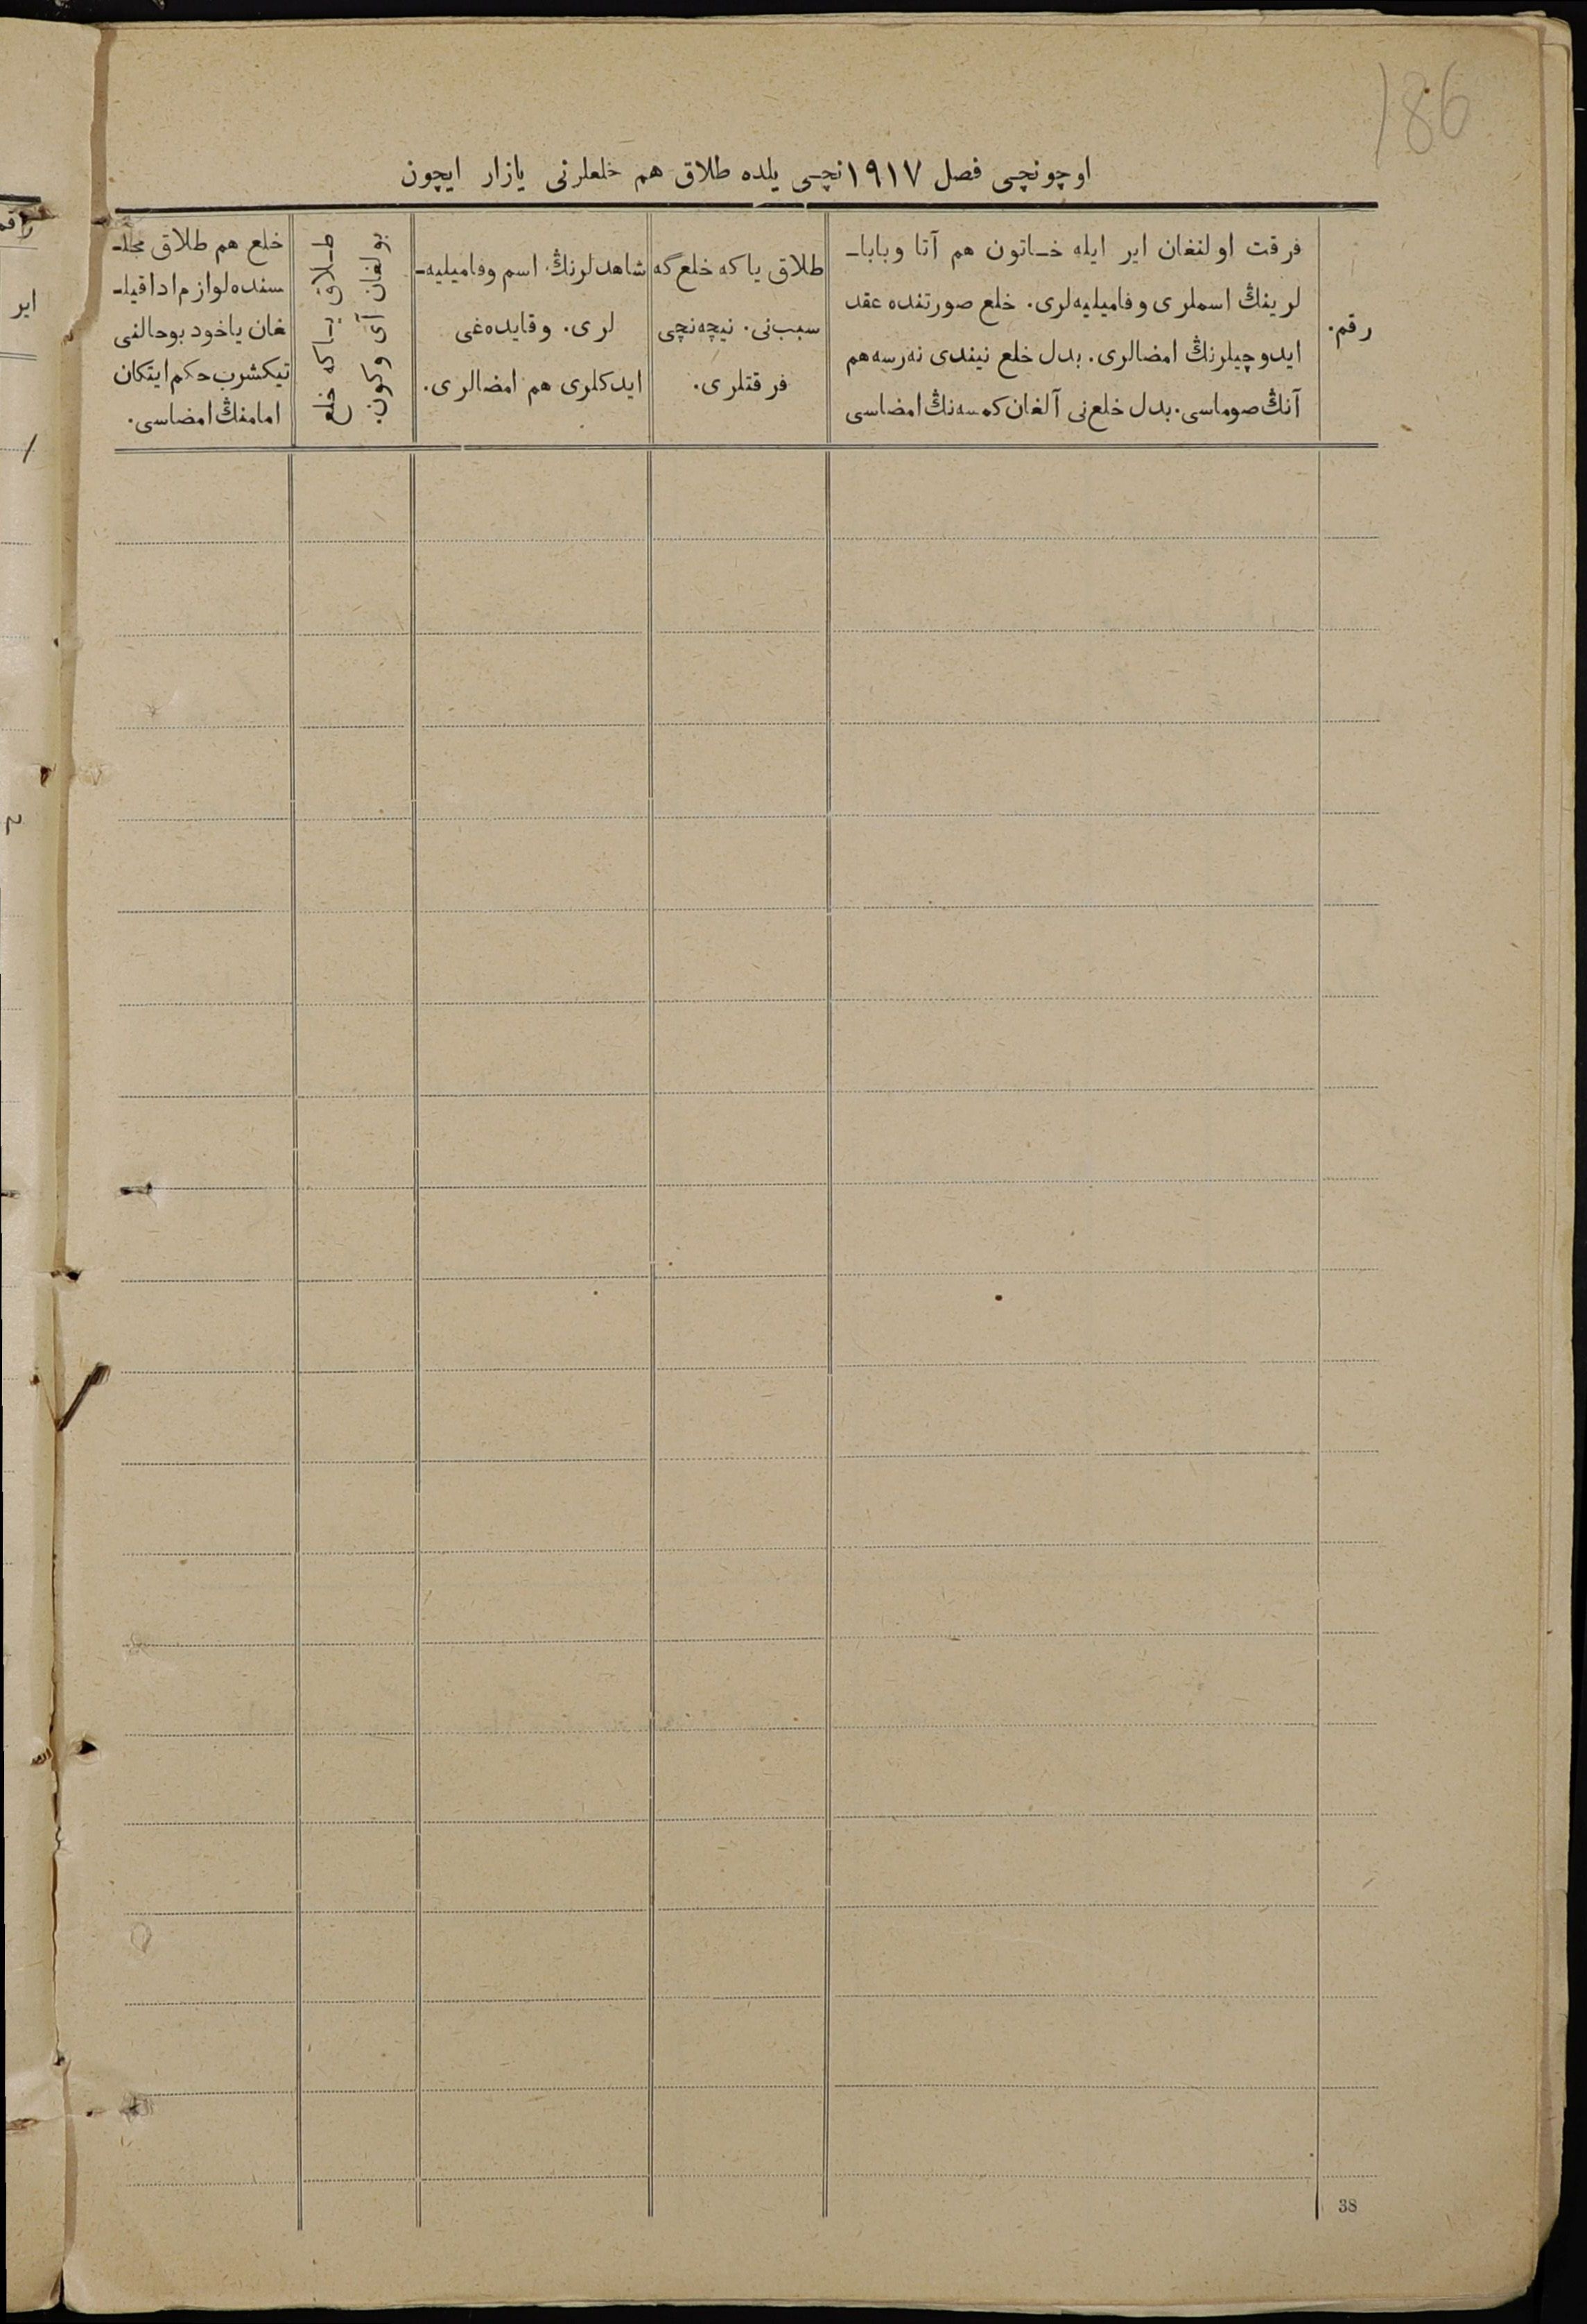 186
اوچونچی فصل ۱۹۱۷نچی یلده طلاق هم خلعلرنی یازار ایچون
رقم.
فرقت اولنغان ایر ایله خـاتون هم آتا وبابا-
لرینڭ اسملری وفامیلیه‌لری. خلع صورتنده عقد
ایدوچیلرنڭ امضالری. بدل خلع نیندی نه‌رسه هم
آنڭ صوماسی. بدل خلع‌نی آلغان کمسه‌نڭ امضاسی
طلاق یا که خلع گه
سبب‌نی. نیچه‌نچی
فرقتلری.
شاهدلرنڭ اسم وفامیلیه-
لری. وقایده‌غی
ایدکلری هم امضالری.
طـلاق یـاکه خلع
بولغان آی وکون.
خلع هم طلاق مجلـ
سنده لوازم ادا قیلـ
غان یاخود بوحالنی
تیکشرب حکم ایتکان
امامنڭ امضاسی.
38
رقم
ایر